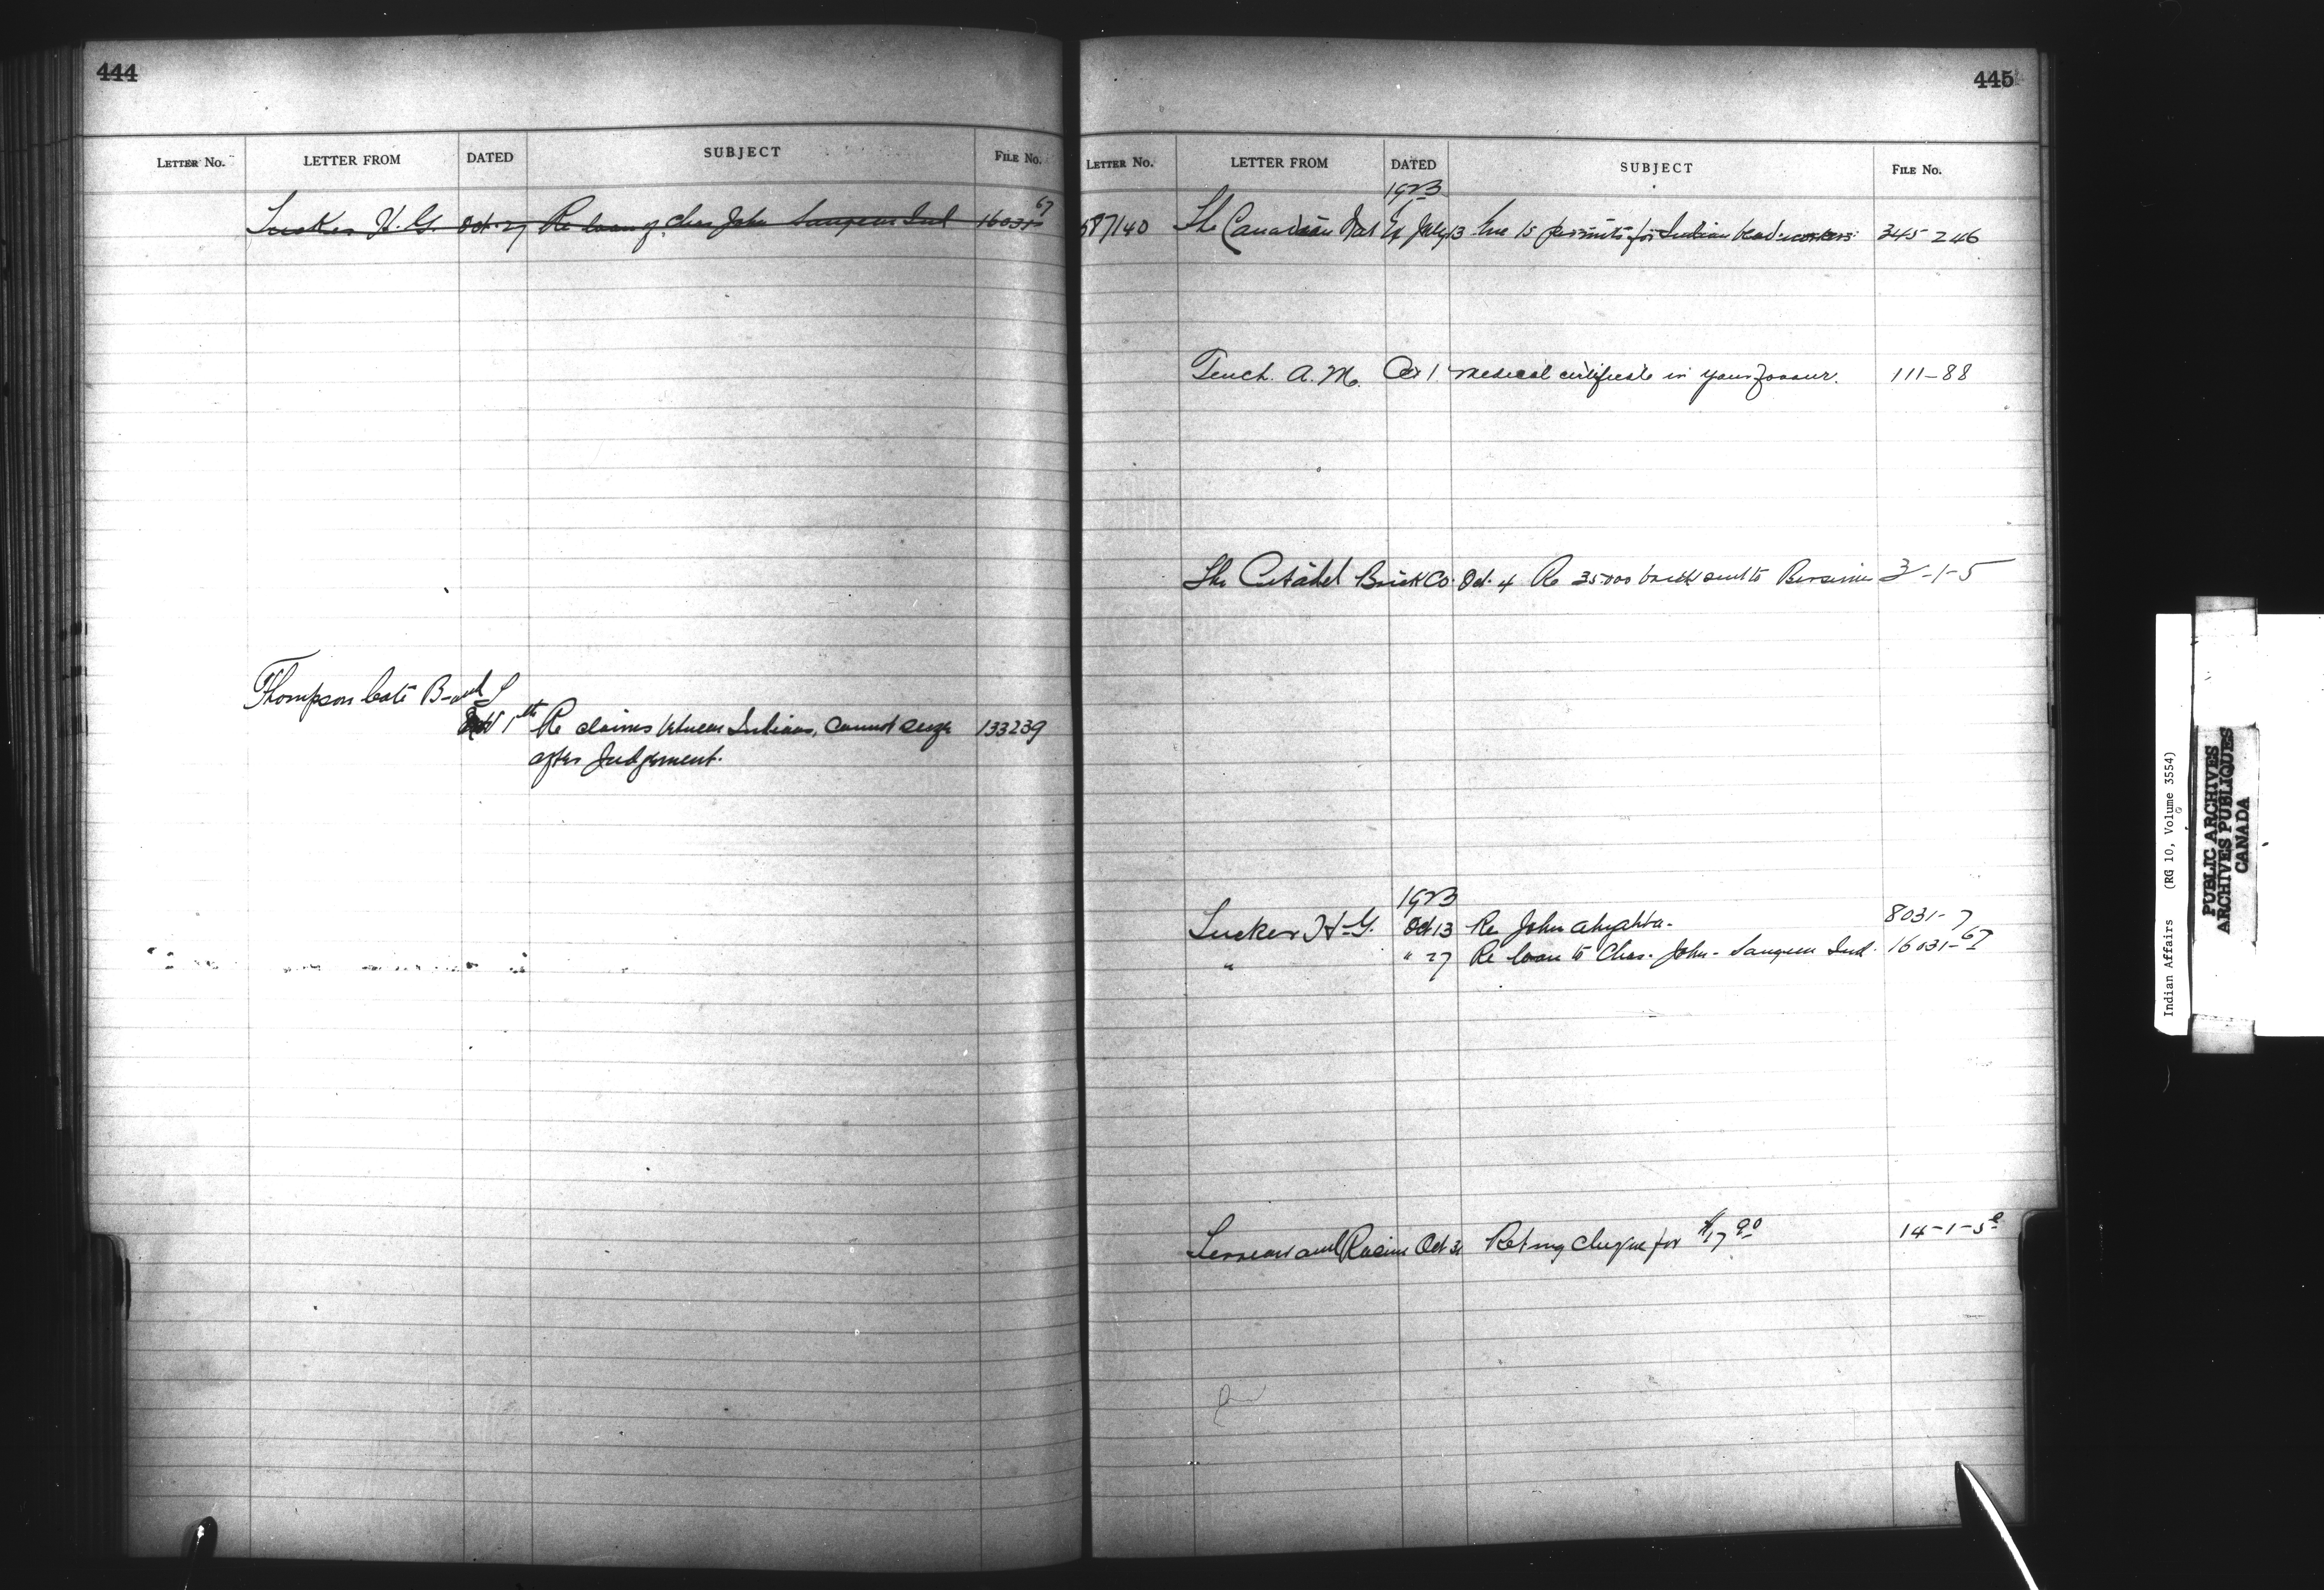 444
LETTER No. LETTER FROM DATED SUBJECT FILE No.
Tucker H. G. Oct. 27 Re loan of Chas John Saugeen Ind 16031-67
Thompson Cote B and
1th Re claims between Indians, cannot
after Judgement. 133239
445
LETTER No. LETTER FROM DATED SUBJECT FILE No.
1923
587140 The Canadian Nat Ex July 13 to permits for Indian bead workers 345246
Tench. A. M. Oct 1 Medical certificate in your favour. 111-88
The Citadel Brick Co. Oct. 4 Re 35000 brick sent to Bersimis 3-1-5
1923
Tucker H. G. Oct 13 Re John 8031-7
" " 27 Re loan to Chas. John - Saugeen Ind. 16031-67
and Racine Oct 31 Retng Cheque for $17.90 14-1-5
Indian Affairs (RG 10, Volume 3554)
PUBLIC ARCHIVES
ARCHIVES PUBLIQUES
CANADA